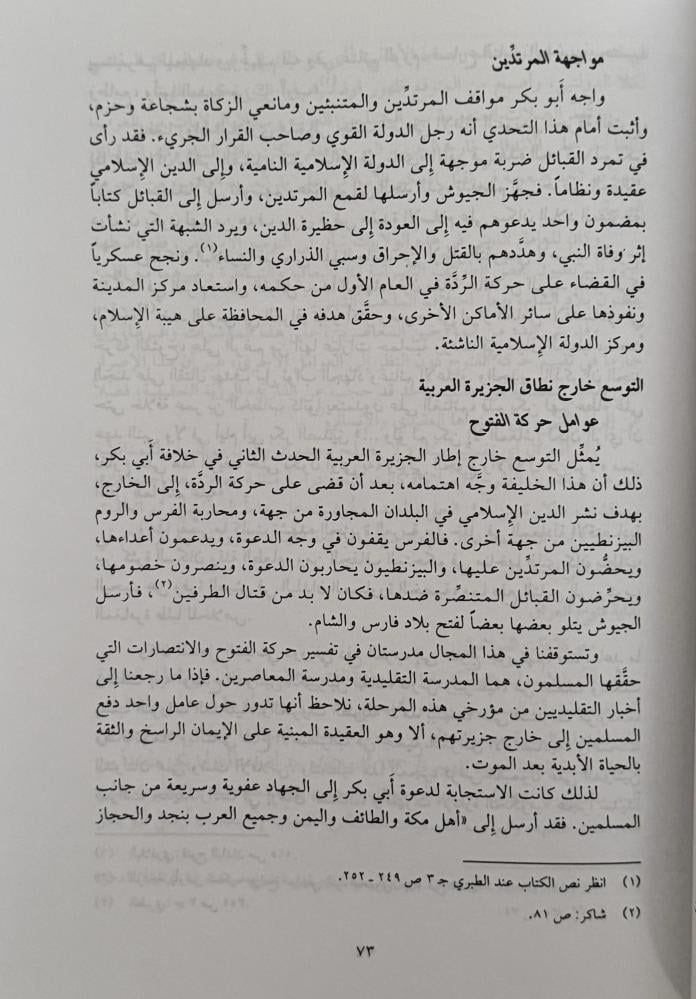 مواجهة المرتدِّين
واجه أَبو بكر مواقف المرتدِّين والمتنبئين ومانعي الزكاة بشجاعة وحزم،
وأثبت أمام هذا التحدي أنه رجل الدولة القوي وصاحب القرار الجريء. فقد رأى
في تمرد القبائل ضربة موجهة إلى الدولة الإسلامية النامية، وإلى الدين الإسلامي
عقيدة ونظاماً. فجهَّز الجيوش وأرسلها لقمع المرتدين، وأرسل إلى القبائل كتاباً
بمضمون واحد يدعوهم فيه إلى العودة إلى حظيرة الدين، ويرد الشبهة التي نشأت
إثر وفاة النبي، وهدَّدهم بالقتل والإحراق وسبي الذراري والنساء(١). ونجح عسكرياً
في القضاء على حركة الرِّدَّة في العام الأول من حكمه، واستعاد مركز المدينة
ونفوذها على سائر الأماكن الأخرى، وحقَّق هدفه في المحافظة على هيبة الإسلام،
ومركز الدولة الإسلامية الناشئة.
التوسع خارج نطاق الجزيرة العربية
عوامل حركة الفتوح
يُمثِّل التوسع خارج إطار الجزيرة العربية الحدث الثاني في خلافة أَبي بكر،
ذلك أن هذا الخليفة وجَّه اهتمامه، بعد أن قضى على حركة الردَّة، إلى الخارج،
بهدف نشر الدين الإسلامي في البلدان المجاورة من جهة، ومحاربة الفرس والروم
البيزنطيين من جهة أخرى. فالفرس يقفون في وجه الدعوة، ويدعمون أعداءها،
ويحضُّون المرتدِّين عليها، والبيزنطيون يحاربون الدعوة، وينصرون خصومها،
ويحرِّضون القبائل المتنصِّرة ضدها، فكان لا بد من قتال الطرفين(٢)، فأرسل
الجيوش يتلو بعضها بعضاً لفتح بلاد فارس والشام.
وتستوقفنا في هذا المجال مدرستان في تفسير حركة الفتوح والانتصارات التي
حقَّقها المسلمون، هما المدرسة التقليدية ومدرسة المعاصرين. فإذا ما رجعنا إلى
أخبار التقليديين من مؤرخي هذه المرحلة، نلاحظ أنها تدور حول عامل واحد دفع
المسلمين إلى خارج جزيرتهم، ألا وهو العقيدة المبنية على الإيمان الراسخ والثقة
بالحياة الأبدية بعد الموت.
لذلك كانت الاستجابة لدعوة أَبي بكر إلى الجهاد عفوية وسريعة من جانب
المسلمين. فقد أرسل إلى «أهل مكة والطائف واليمن وجميع العرب بنجد والحجاز
(١) انظر نص الكتاب عند الطبري جـ ٣ ص ٢٤٩ ـ ٢٥٢.
(٢) شاكر: ص ٨١.
٧٣